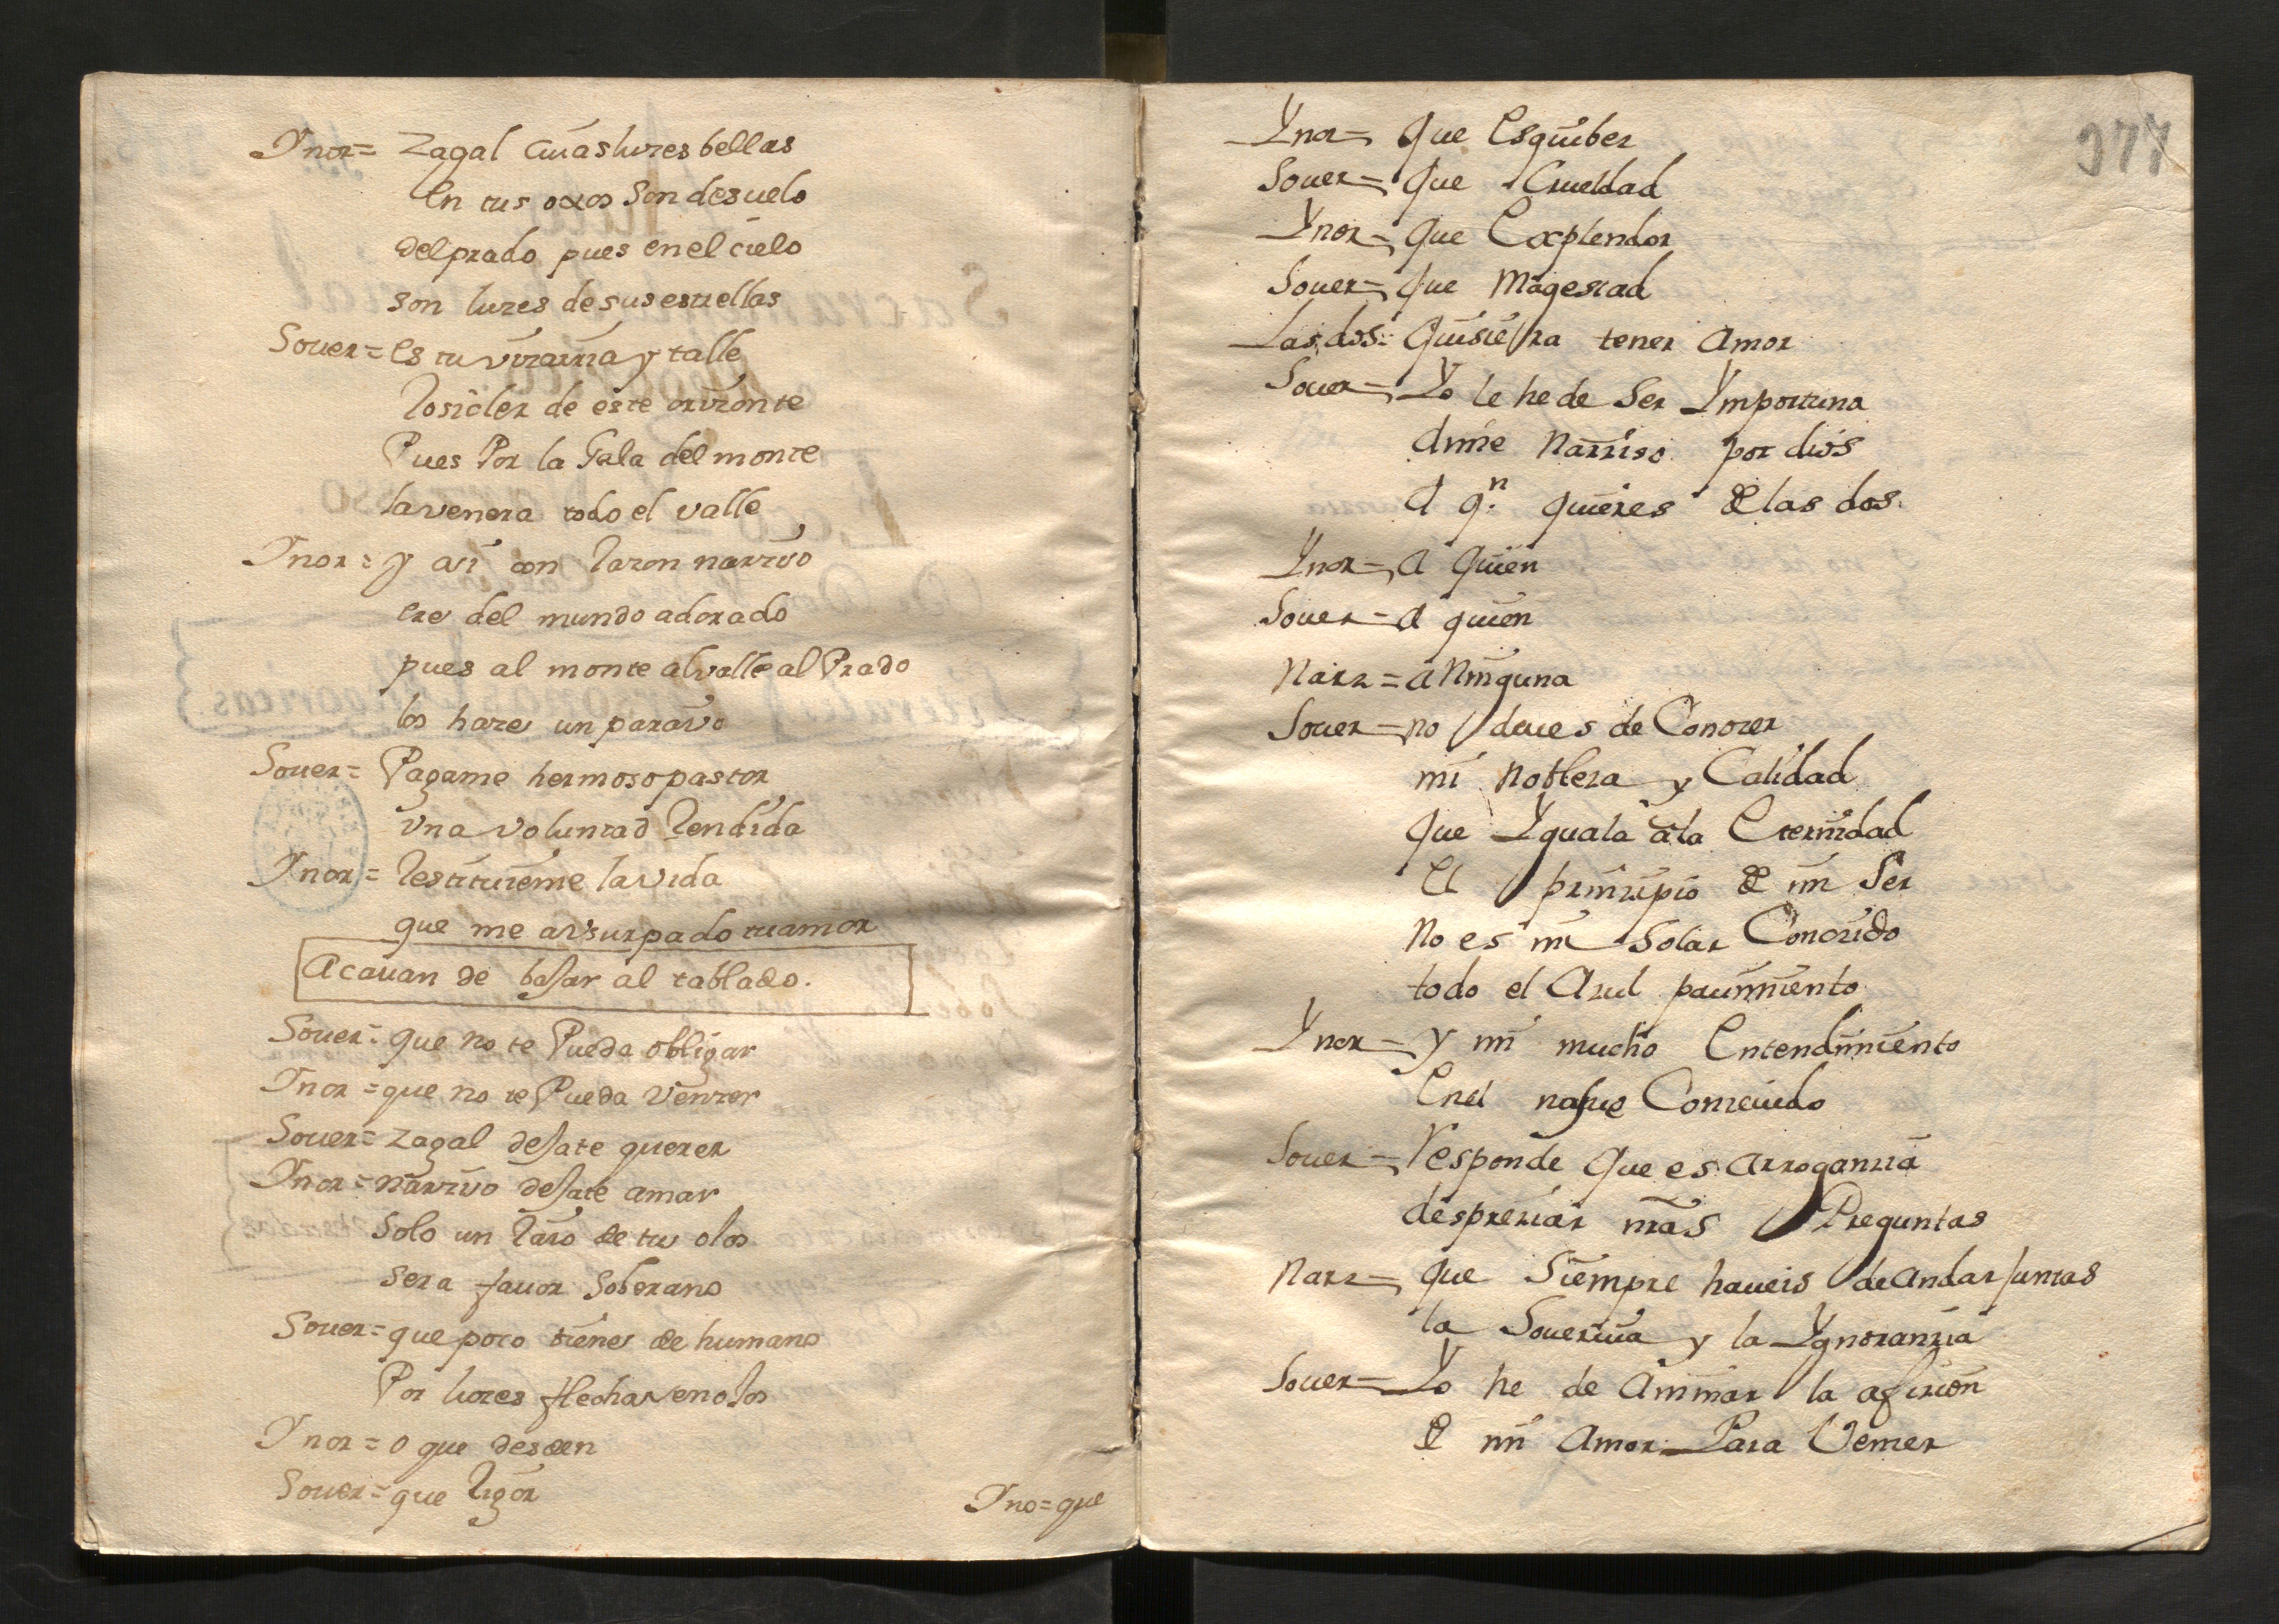 Ynor= Zagal cuias luzes bellas
en tus oxos son desuelo
del prado pues en el cielo
son luzes de sus estrellas
Souer= es tu vizarria y talle
Rosicler de este orizonte
Pues Por la Gala del monte
la venera todo el valle
Ynor= y asi con Razon narziso
eres del mundo adorado
pues al monte al valle al Prado
los hazes un paraiso
Souer= Pagame hermoso pastor
vna voluntad Rendida
Ynor= Restituieme la vida
que me a vsurpado tu amor
Acauan de bajar al tablado.
Souer= que no te Pueda obligar
Ynor= que no te Pueda venzer
Souer= zagal dejate querer
Ynor= narziso dejate amar
solo un Raio de tus ojos
sera fauor soberano
Souer= que poco tienes de humano
Por luzes flechas enojos
Ynor= o que desden
Souer= que Rigor
Yno= que
377
Ynor= que Esquibez
Souer= que Crueldad
Ynor= que Explendor
Souer= que Magestad
Las dos= quisiera tener Amor
Souer= Yo le he de ser Ymportuna
dime Narziso por dios
a qn. quieres de las dos
Ynor= a quien
Souer= a quien
Narz= a Ninguna
Souer= no deues de Conozer
mi Nobleza y Calidad
que Yguala a la Eternidad
el prinzipio de mi Ser
No es mi Solar Conozido
todo el Azul pauimiento
Ynor= y mi mucho Entendimiento
En el nasue Conzeuido
Souer= Responde que es arroganzia
despreziar mas Preguntas
Narz= que Siempre haueis de andar juntas
la Soueruia y la Ygnoranzia
Souer= Yo he de animar la afizion
de mi Amor Para Venzer